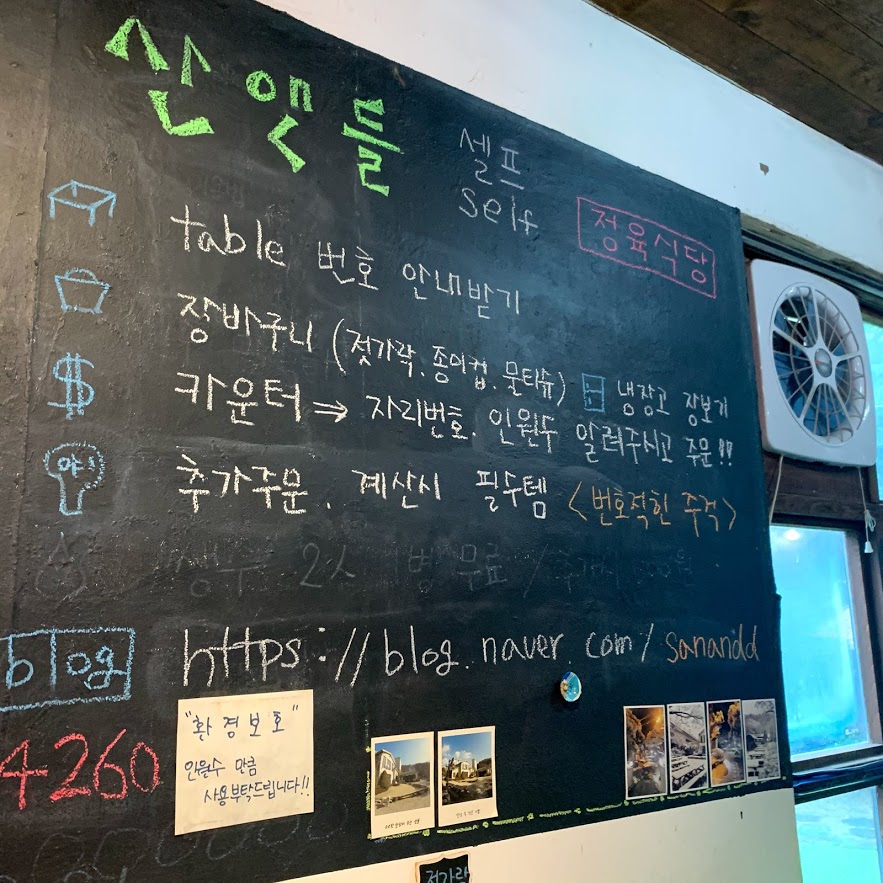 산앤들
셀프
self
정육식당
table 번호 안내받기
장바구니 (젓가락.종이컵.물티슈) 냉장고 장보기
$ 카운터 ⇒ 자리번호. 인원수 알려주시고 주문!!
야! 추가주문. 계산시 필수템 <번호적힌 주걱>
생수 2人 병 무료 /
blog https://blog.naver.com/sanandd
4260
"환경보호"
인원수 만큼
사용부탁드립니다!!
젓가락